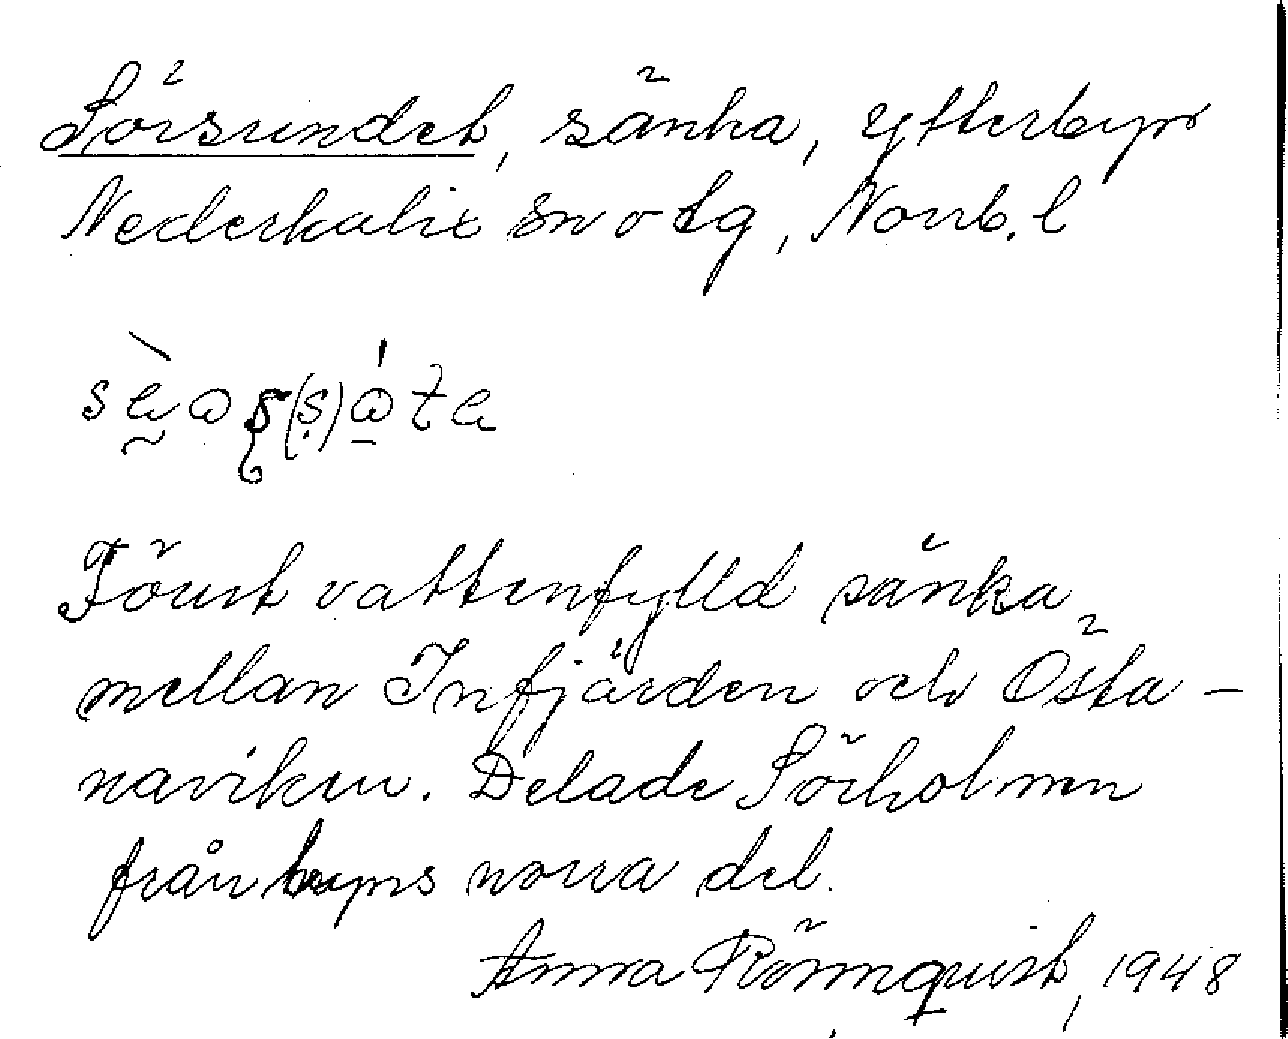 Sörsundet, sänka, ytterbyn
Nederkalix sn o tg, Norrb. l
Förut vattenfylld sänka
mellan Infjärden och Östa-
naviken. Delade Sörholmen
från byns norra del.
Anna Rönnquist, 1948